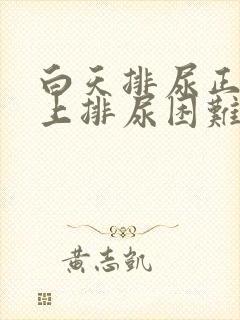 白天排尿正
上排尿困難
黃志凱